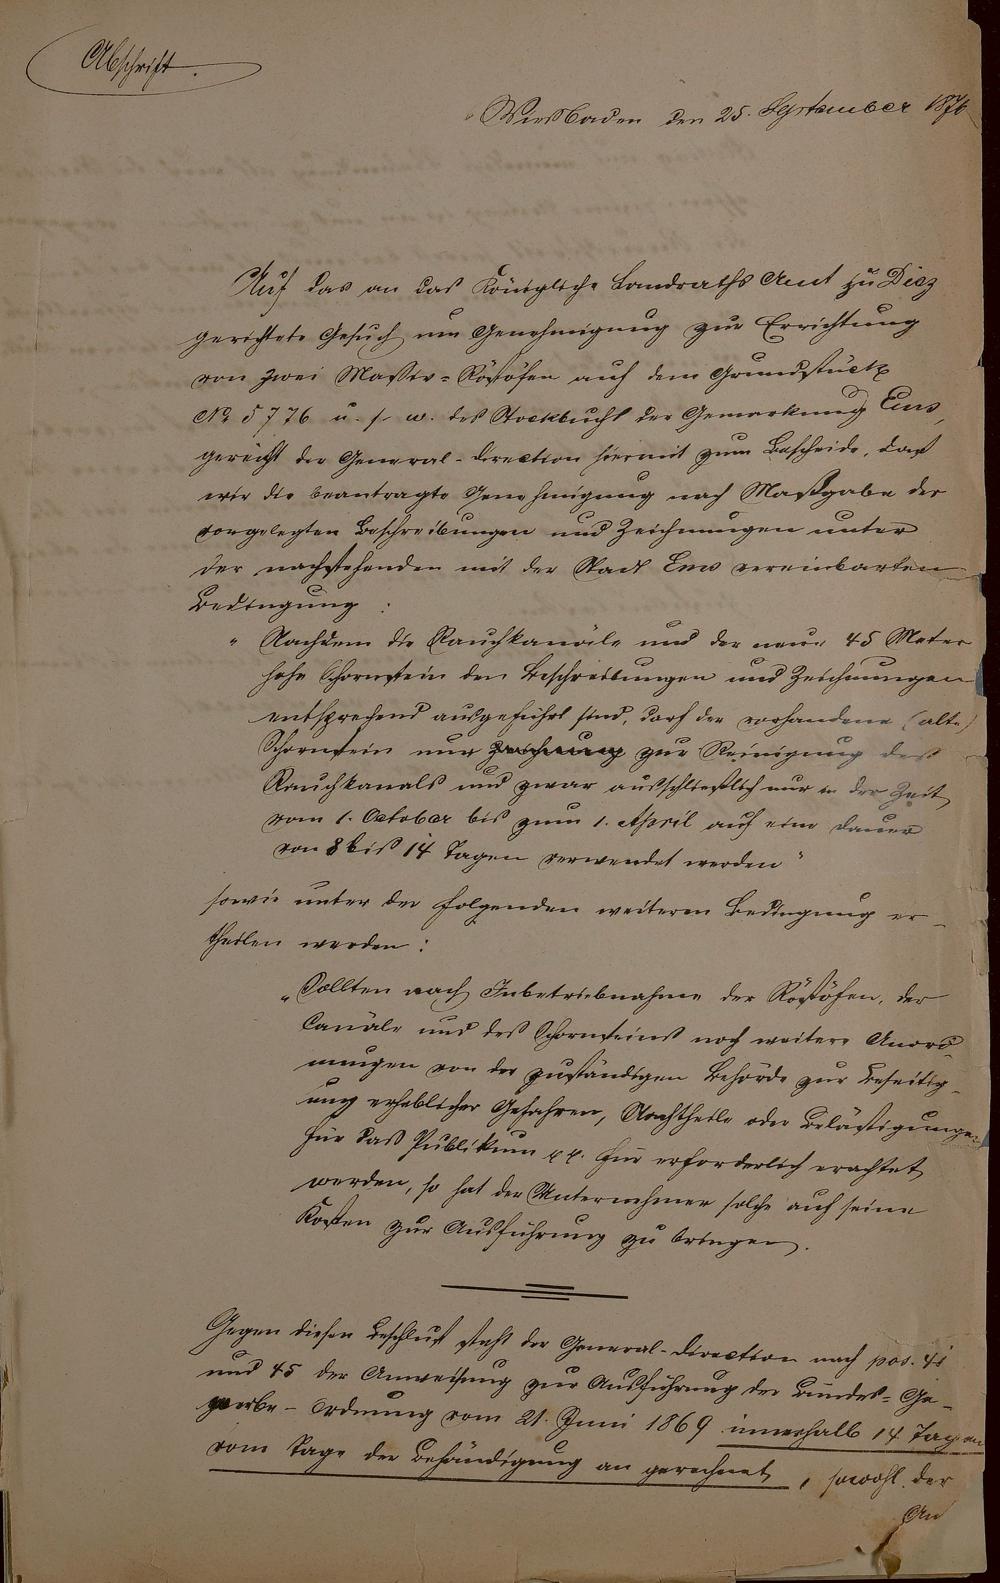 Abschrift.
Wiesbaden den 25. September 1876
Auf das an das Königliche Landraths Amt zu Diez
gerichtete Gesuch um Genehmigung zur Errichtung
von zwei Massiv-Röstöfen auf dem Grundstücke
No 5776 u. s. w. des Stockbuchs der Gemarkung Ems,
gereicht der General-Direction hiermit zum Bescheide, daß
wir die beantragte Genehmigung nach Maßgabe der
vorgelegten Beschreibungen und Zeichnungen unter
der nachstehenden mit der Stadt Ems vereinbarten
Bedingung :
" Nachdem die Rauchkanäle und der neue 45 Meter
hohe Schornstein den Beschreibungen und Zeichnungen
entsprechend ausgeführt sind, darf der vorhandene (alte)
Schornstein nur zur Reinigung des
Rauchkanals und zwar ausschließlich nur in der Zeit
vom 1. October bis zum 1. April auf eine Dauer
von 8 bis 14 Tagen verwendet werden "
sowie unter der folgenden weiteren Bedingung er-
theilen werden :
" Sollten nach Inbetriebnahme der Röstöfen, der
Canäle und des Schornsteins noch weitere Anord-
nungen von der zuständigen Behörde zur Beseitig-
ung erheblicher Gefahren, Nachtheile oder Belästigungen
für das Publikum für erforderlich erachtet
werden, so hat der Unternehmer solche auf seine
Kosten zur Ausführung zu bringen.
Gegen diesen Beschluß steht der General-Direction nach pos.
und 45 der Anweisung zur Ausführung der Bundes-Ge-
werbe-Ordnung vom 21. Juni 1869 innerhalb 14 Tagen
vom Tage der Behändigung an gerechnet, sowohl der
An